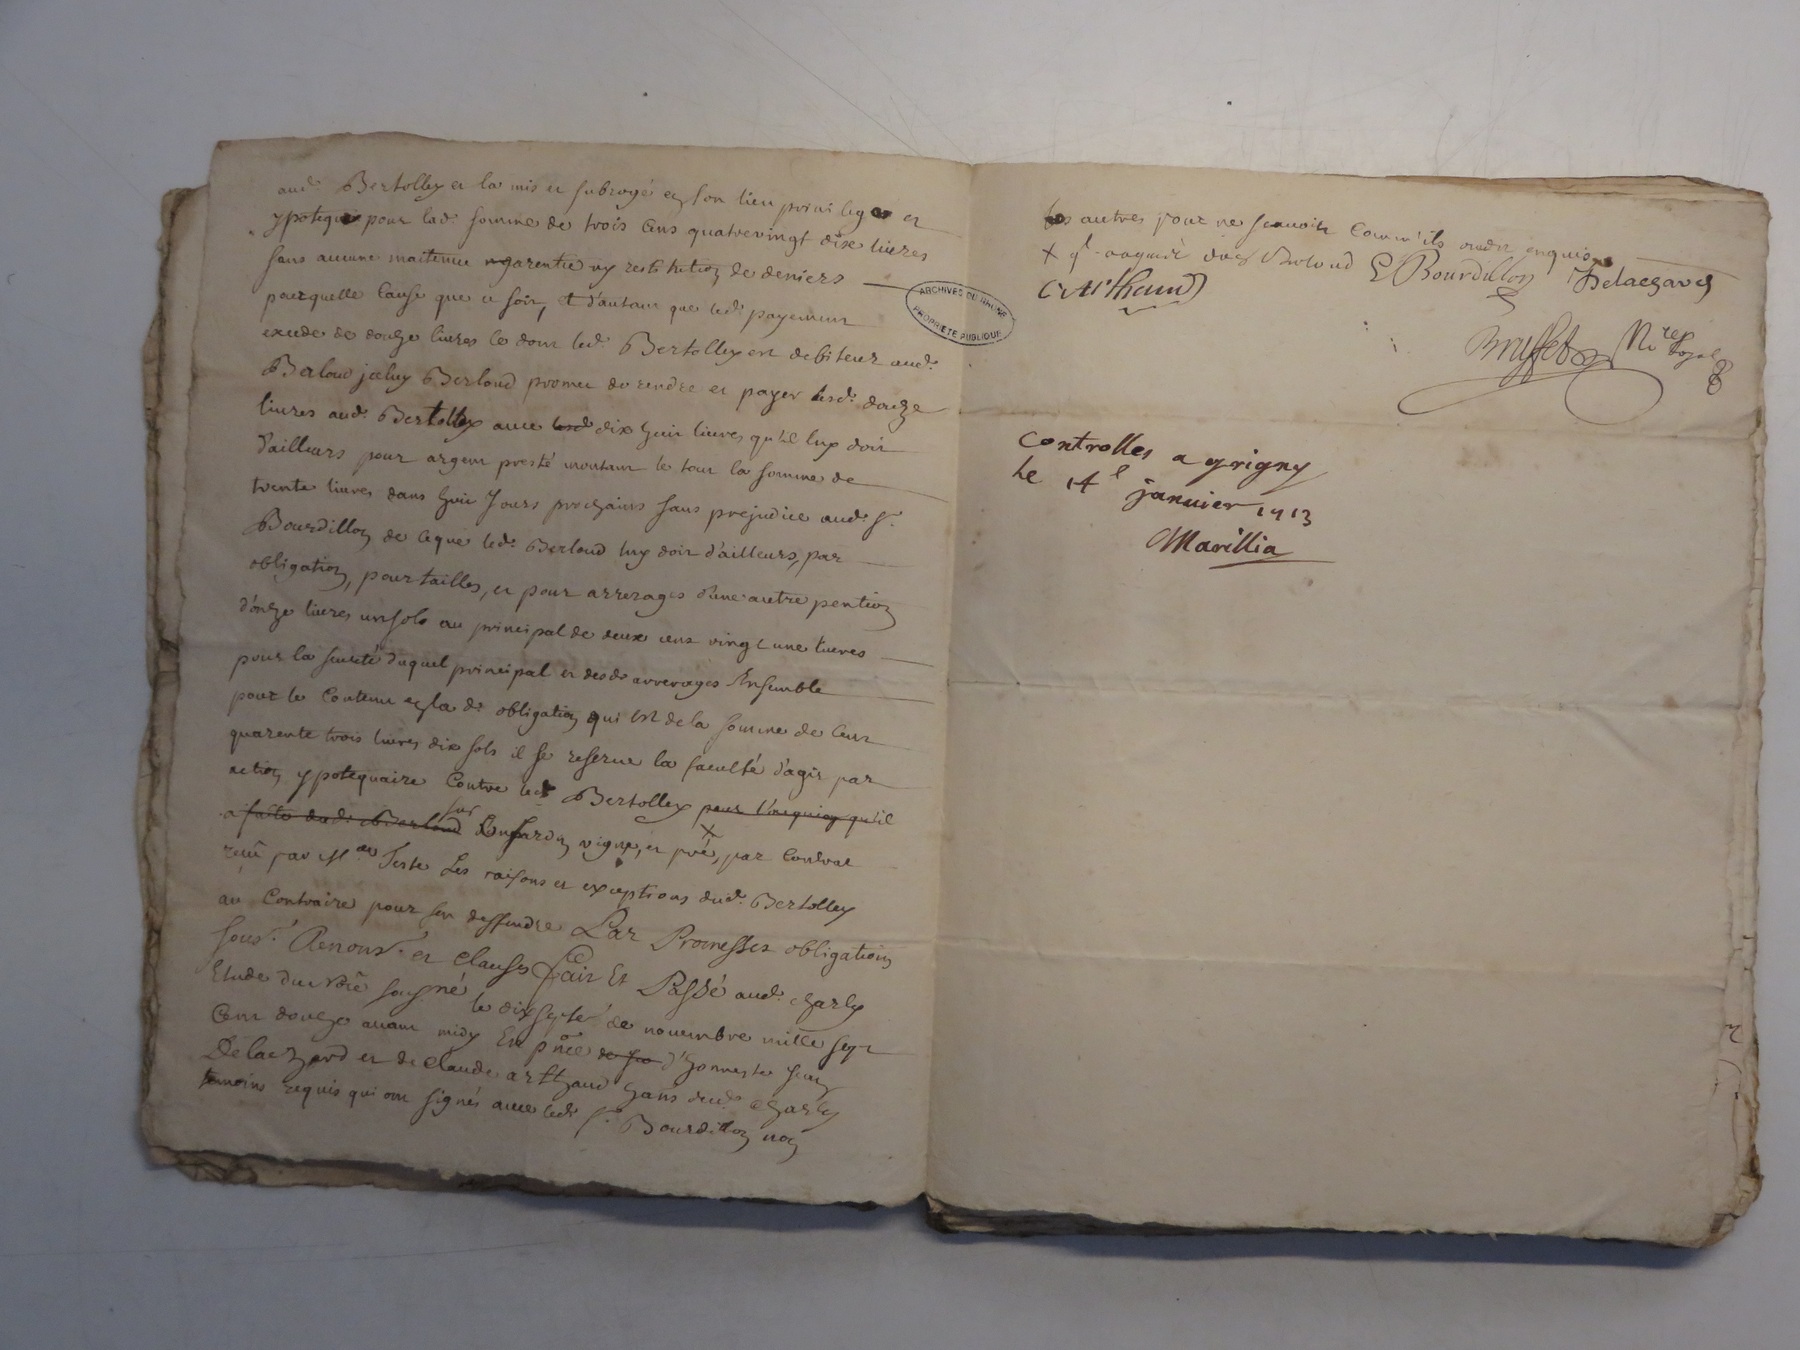 aud. Bertolley et la mis et subrogé en son lieu privileges et
ypoteque pour lad. somme de trois cens quatrevingt dix livres
sans aucune maitenue ny garentie ny restitution de deniers
pour quelle cause que ce soit, et d'autant que led. payement
excede de douze livres ce dont led. Bertolley est debiteur aud.
Berloud jceluy Berloud promet de rendre et payer lesd. douze
livres aud. Bertolley avec lesd dix huit livres qu'il luy doit
d'ailleurs pour argent presté montant le tout la somme de
trente livres dans huit jours prochains sans prejudice aud. Sr.
Bourdillon de ce que led. Berloud luy doit d'ailleurs, par
obligation, pour tailles, et pour arrerages d'une autre pention
d'onze livres un sols au principal de deux cens vingt une livres
pour la seureté duquel principal et desd. arrerages Ensemble
pour le Contenu en lad. obligation qui est de la somme de Cent
quarente trois livres dix sols il se reserve la faculté d'agir par
action ypotequaire Contre led. Bertolley pour l'acquis qu'il
a faite dud. Berloud sur Jardin vigne, et pré, par Contrat
X
receu par Me Teste Les raisons et exceptions dud. Bertolley
au Contraire pour s'en deffendre Par Promesses obligations
sous. Renons. et clauses Fait Et Passé aud. charly
Etude du no.re sousné le dix septe. de novembre mille sept
Cent douze avant midy En pnce de sr d'honneste Jean
Delachard et de Claude arthaud habs dud. Charly
temoins requis qui ont signés avec led. Sr. Bourdillon non
les autres pour ne scavoir Comm'ils ont dit enquis
X qu'il acquis dud Berloud E Bourdillon Delachard
C Arthaud
ARCHIVES DU RHONE
PROPRIETE PUBLIQUE
Buffet Nre Royal
Controlles a grigny
le 14e janvier 1713
Marillia